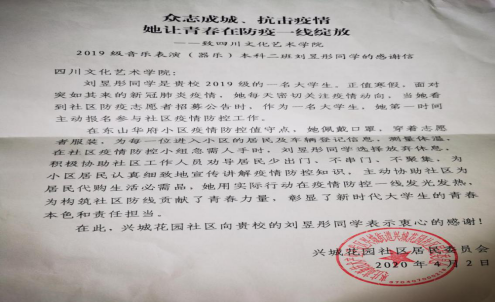 众志成城、抗击疫情
她让青春在防疫一线绽放
——致四川文化艺术学院
2019级音乐表演（器乐）本科二班刘昱彤同学的感谢信
四川文化艺术学院：
刘昱彤同学是贵校2019级的一名大学生。正值寒假，面对
突如其来的新冠肺炎疫情，她每天密切关注疫情动向，当她看
到社区防疫志愿者招募公告时，作为一名大学生，她第一时间
主动报名参与社区疫情防控工作。
在东山华府小区疫情防控值守点，她佩戴口罩，穿着志愿
者服装，为每一位进入小区的居民及车辆登记信息，测量体温，
在社区疫情防控小组急需人手时，刘昱彤同学选择放弃休息，
积极协助社区工作人员劝导居民少出门、不串门、不聚集，为
小区居民认真细致地宣传讲解疫情防控知识，主动协助社区为
居民代购生活必需品，她用实际行动在疫情防控一线发光发热，
为构筑社区防线贡献了青春力量，彰显了新时代大学生的青春
本色和责任担当。
在此，兴城花园社区向贵校的刘昱彤同学表示衷心的感谢！
兴城花园社区居民委员会
2020年4月2日